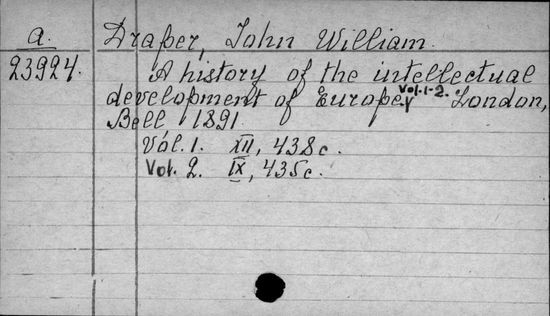 a. Draper, John William.
23924. A history of the intellectual
development of Europe. Vol. 1-2. London,
Bell 1891
Vol. 1. XII, 438 c.
Vol. 2. IX, 435 c.